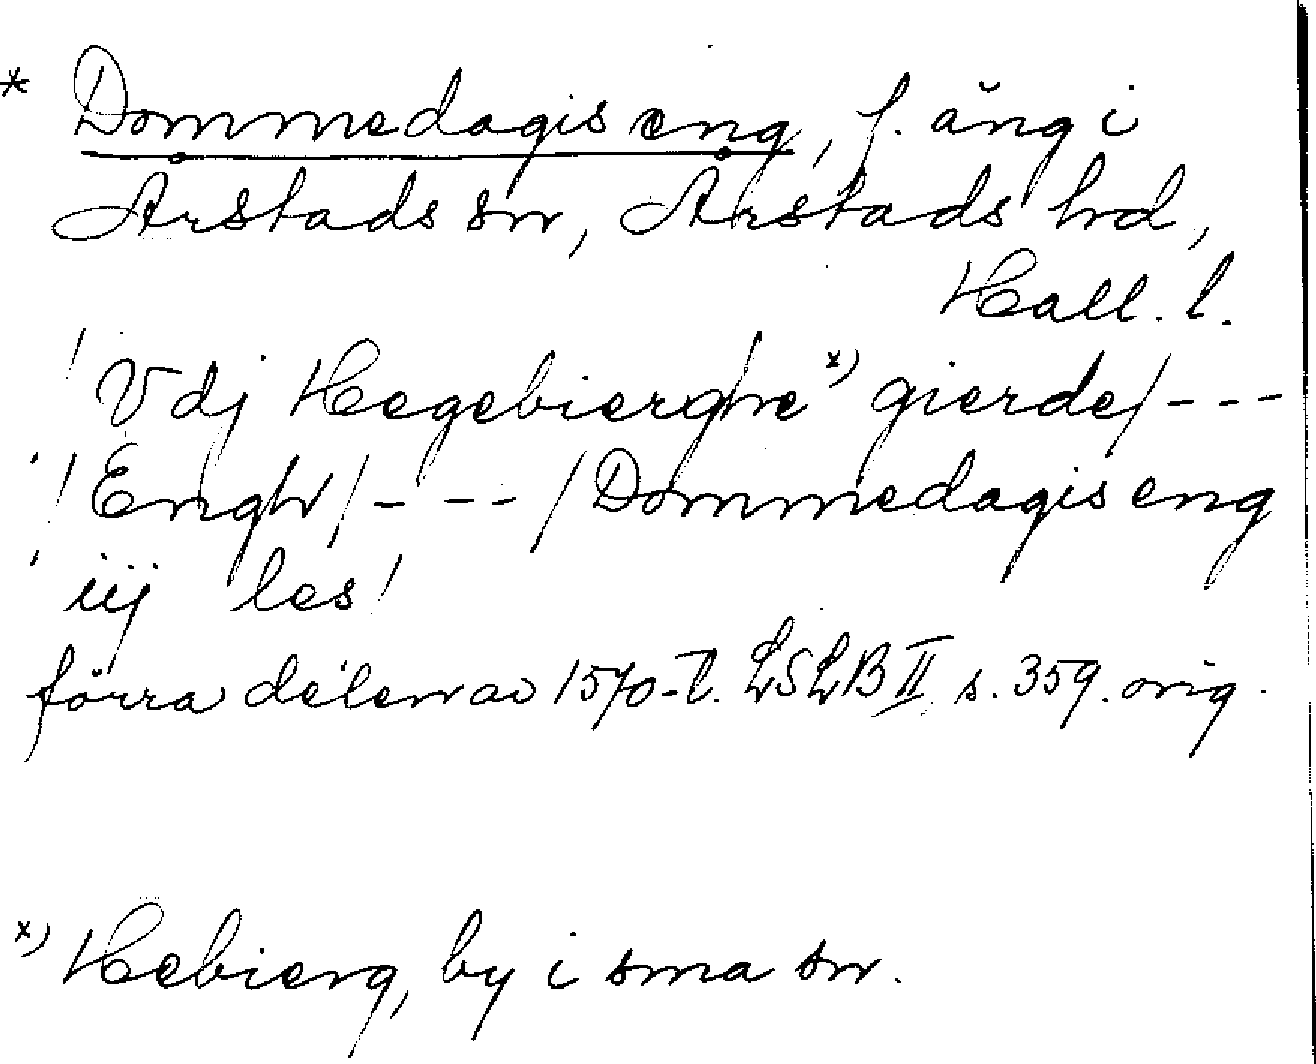 * Dommedagis eng, f. äng i
Årstads sn, Årstads hd,
Hall. l.
! Vdj Hegebierghe x) gierde/ ---
! / Engh / - -- / Dommedagis eng
! iij les!
förra delen av 1570-t. LSLB II s. 359. orig.
x) Hebierg, by i sma sn.